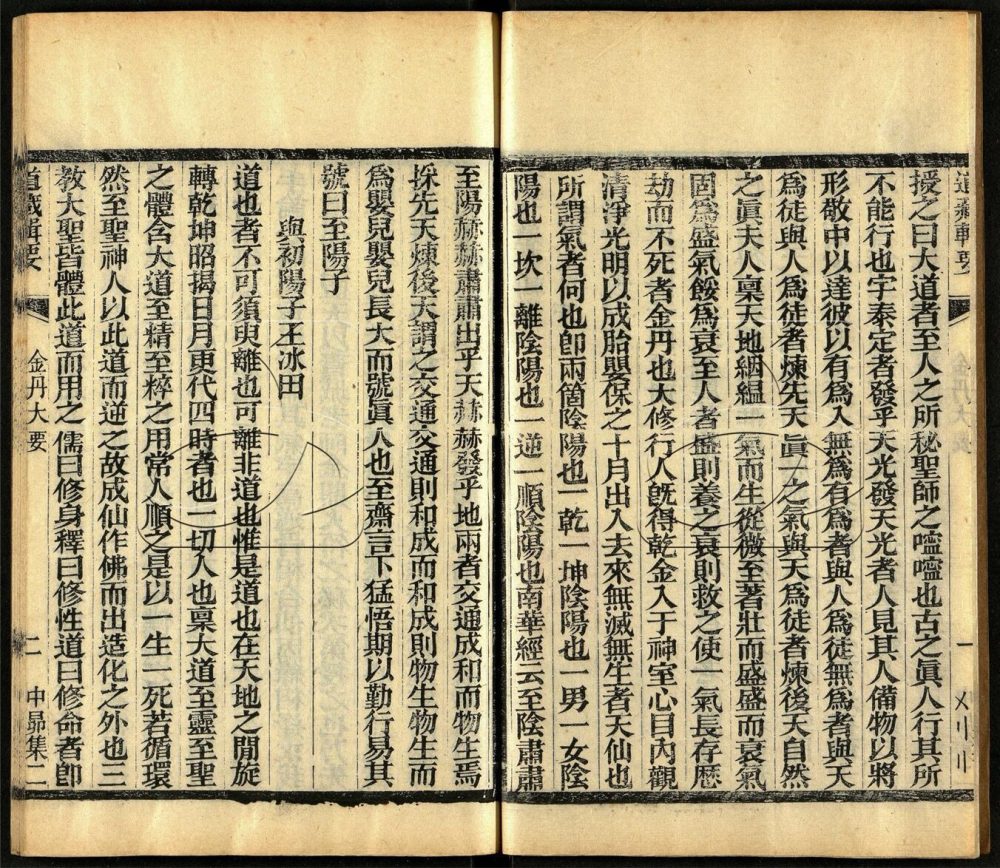 道藏輯要
授之曰大道者至人之所秘聖師之嗑嗑也古之眞人行其所
不能行也宇泰定者發乎天光發天光者人見其人備物以將
形敬中以達彼以有爲入無爲有爲者與人爲徒無爲者與天
爲徒與人爲徒者煉先天眞一之氣與天爲徒者煉後天自然
之眞夫人稟天地絪縕一氣而生從微至著壯而盛盛而衰氣
固爲盛氣餒爲衰至人者盛則養之衰則救之使一氣長存歷
劫而不死者金丹也大修行人旣得乾金入于神室心目內觀
清淨光明以成胎嬰保之十月出入去來無滅無生者天仙也
所謂氣者何也卽兩箇陰陽也一乾一坤陰陽也一男一女陰
陽也一坎一離陰陽也一逆一順陰陽也南華經云至陰肅肅
至陽赫赫肅肅出乎天赫赫發乎地兩者交通成和而物生焉
採先天煉後天謂之交通交通則和成而和成則物生物生而
爲嬰兒嬰兒長大而號眞人也至齋言下猛悟期以勤行易其
號曰至陽子
與初陽子王冰田
道也者不可須臾離也可離非道也惟是道也在天地之閒旋
轉乾坤昭揭日月更代四時者也一切人也稟大道至靈至聖
之體含大道至精至粹之用常人順之是以一生一死若循環
然至聖神人以此道而逆之故成仙作佛而出造化之外也三
教大聖皆體此道而用之儒曰修身釋曰修性道曰修命者卽
道藏輯要
金丹大要
二
中昴集二